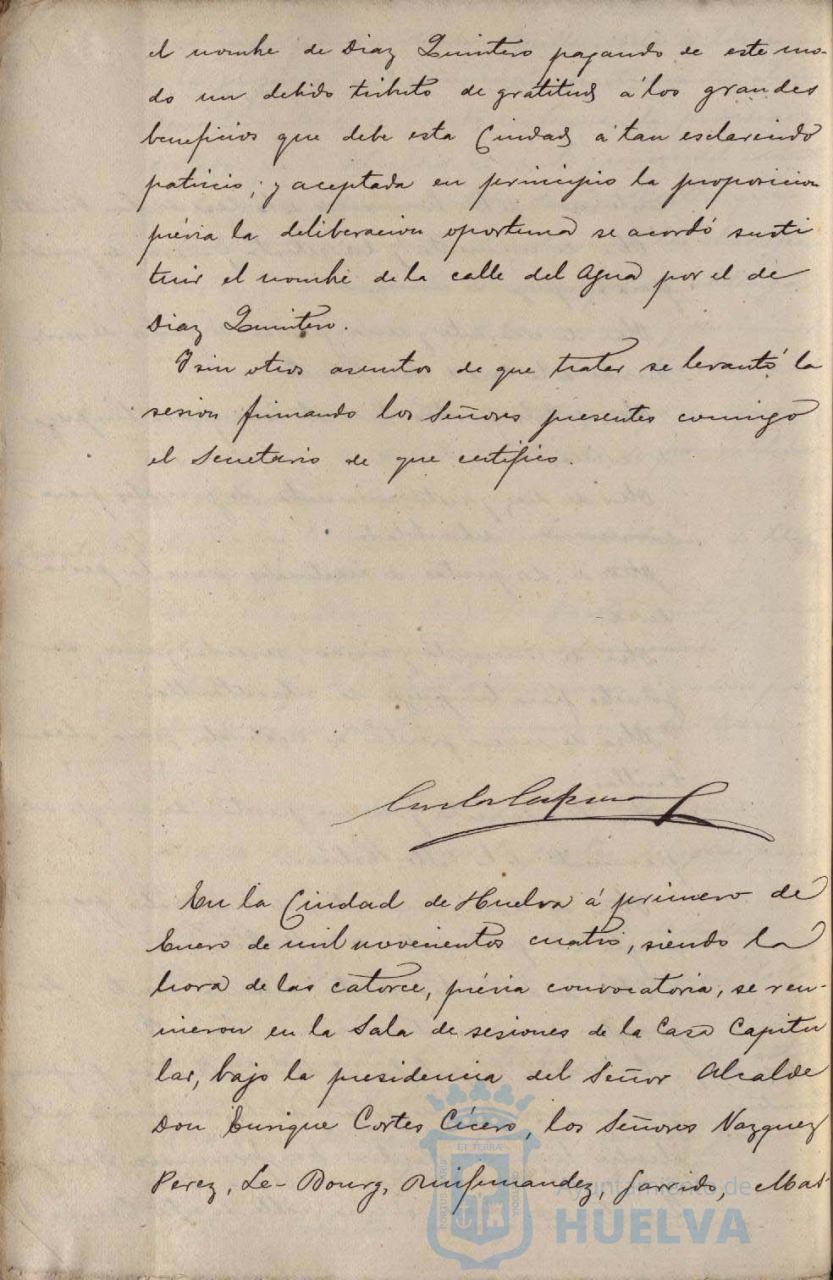 el nombre de Diaz Quintero pagando de este mo-
do un debido tributo de gratitud á los grandes
beneficios que debe esta Ciudad á tan esclarecido
patricio; y aceptada en principio la proposicion
prévia la deliberacion oportuna se acordó susti
tuir el nombre de la calle del Agua por el de
Diaz Quintero.
Y sin otros asuntos de que tratar se levantó la
sesion firmando los Señores presentes conmigo
el Secretario de que certifico.
En la Ciudad de Huelva á primero de
Enero de mil novecientos cuatro, siendo la
hora de las catorce, prévia convocatoria, se reu-
nieron en la Sala de sesiones de la Casa Capitu
lar, bajo la presidencia del Señor Alcalde
Don Enrique Cortes Cícero, los Señores Vazquez
Perez, Le-Bourg, Ruifernandez, Garrido, Mat
Ayuntamiento de
HUELVA